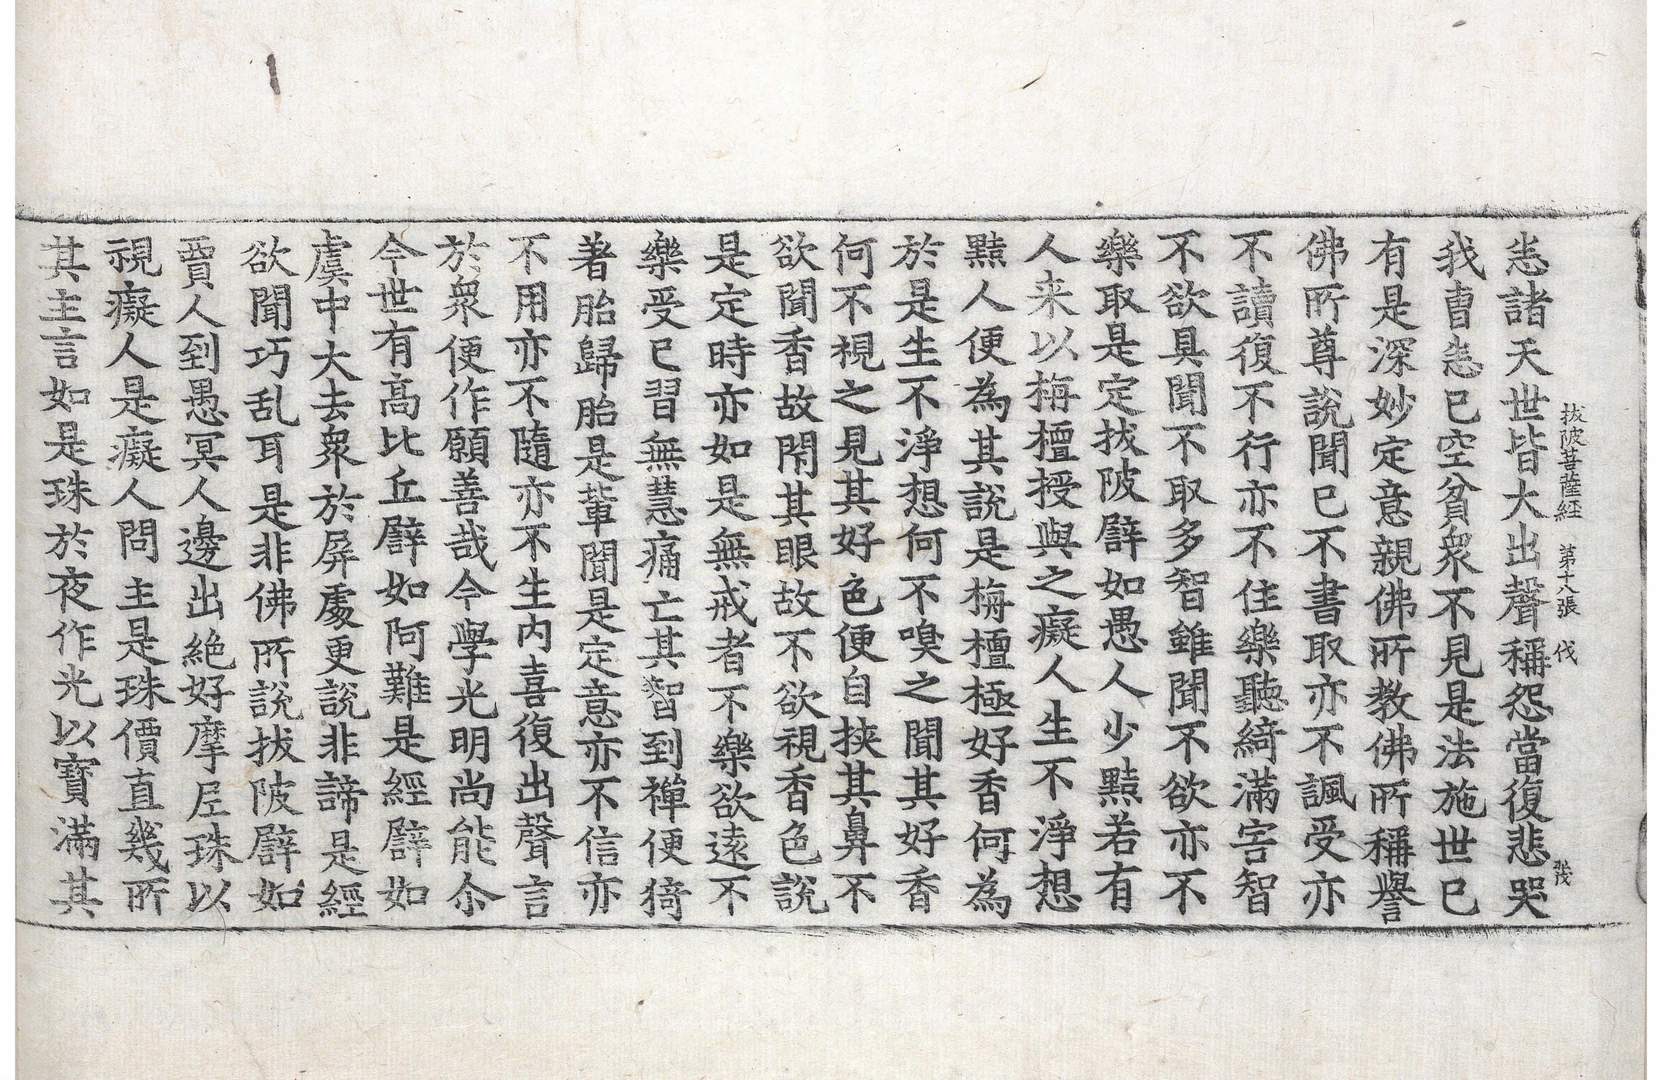 拔陂菩薩經 第十八張 伐
恙諸天世皆大出聲稱怨當復悲哭
我曺恙已空貧衆不見是法施世已
有是深妙定意親佛所教佛所稱譽
佛所尊說聞已不書取亦不諷受亦
不讀復不行亦不住樂聽綺滿害智
不欲具聞不取多智雖聞不欲亦不
樂取是定拔陂譬如愚人少黠若有
人来以栴檀授與之癡人生不淨想
黠人便為其說是栴檀極好香何為
於是生不淨想何不嗅之聞其好香
何不視之見其好色便自挾其鼻不
欲聞香故閇其眼故不欲視香色說
是定時亦如是無戒者不樂欲遠不
樂受已習無慧痛亡其智到禪便猗
著胎歸胎是輩聞是定意亦不信亦
不用亦不隨亦不生內喜復出聲言
於衆便作願善哉今學光明尚能尒
今世有高比丘譬如阿難是經譬如
虞中大去衆於屏處更說非諦是經
欲聞巧乱耳是非佛所說拔陂譬如
賈人到愚冥人邊出絶好摩尼珠以
視癡人是癡人問主是珠價直幾所
其主言如是珠於夜作光以寶滿其